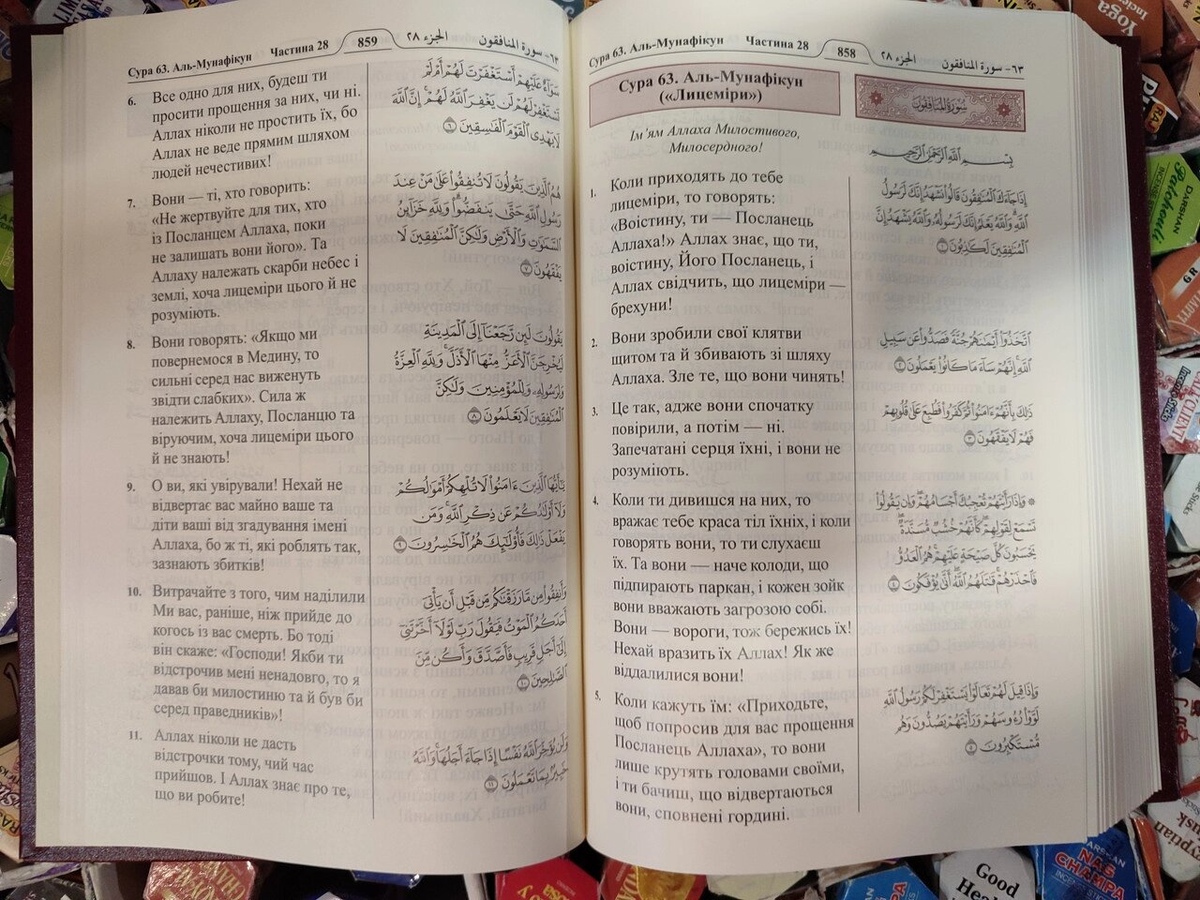 Сура 63. Аль-Мунафікун Частина 28 858 الجزء ٢٨ ٦٣- سورة المنافقون
Сура 63. Аль-Мунафікун
(«Лицеміри»)
Ім'ям Аллаха Милостивого,
Милосердного!
1. Коли приходять до тебе
лицеміри, то говорять:
«Воістину, ти — Посланець
Аллаха!» Аллах знає, що ти,
воістину, Його Посланець, і
Аллах свідчить, що лицеміри —
брехуни!
2. Вони зробили свої клятви
щитом та й збивають зі шляху
Аллаха. Зле те, що вони чинять!
3. Це так, адже вони спочатку
повірили, а потім — ні.
Запечатані серця їхні, і вони не
розуміють.
4. Коли ти дивишся на них, то
вражає тебе краса тіл їхніх, і коли
говорять вони, то ти слухаєш
їх. Та вони — наче колоди, що
підпирають паркан, і кожен зойк
вони вважають загрозою собі.
Вони — вороги, тож бережись їх!
Нехай вразить їх Аллах! Як же
віддалилися вони!
5. Коли кажуть їм: «Приходьте,
щоб попросив для вас прощення
Посланець Аллаха», то вони
лише крутять головами своїми,
і ти бачиш, що відвертаються
вони, сповнені гордині.
سُورَةُ المُنَافِقُونَ
بِسْمِ ٱللَّهِ ٱلرَّحْمَٰنِ ٱلرَّحِيمِ
إِذَا جَآءَكَ ٱلْمُنَٰفِقُونَ قَالُوا۟ نَشْهَدُ إِنَّكَ لَرَسُولُ
ٱللَّهِ ۗ وَٱللَّهُ يَعْلَمُ إِنَّكَ لَرَسُولُهُۥ وَٱللَّهُ يَشْهَدُ إِنَّ
ٱلْمُنَٰفِقِينَ لَكَٰذِبُونَ ١
ٱتَّخَذُوٓا۟ أَيْمَٰنَهُمْ جُنَّةً فَصَدُّوا۟ عَن سَبِيلِ
ٱللَّهِ ۚ إِنَّهُمْ سَآءَ مَا كَانُوا۟ يَعْمَلُونَ ٢
ذَٰلِكَ بِأَنَّهُمْ ءَامَنُوا۟ ثُمَّ كَفَرُوا۟ فَطُبِعَ عَلَىٰ قُلُوبِهِمْ
فَهُمْ لَا يَفْقَهُونَ ٣
۞ وَإِذَا رَأَيْتَهُمْ تُعْجِبُكَ أَجْسَامُهُمْ ۖ وَإِن يَقُولُوا۟
تَسْمَعْ لِقَوْلِهِمْ ۖ كَأَنَّهُمْ خُشُبٌ مُّسَنَّدَةٌ ۖ
يَحْسَبُونَ كُلَّ صَيْحَةٍ عَلَيْهِمْ ۚ هُمُ ٱلْعَدُوُّ
فَٱحْذَرْهُمْ ۚ قَٰتَلَهُمُ ٱللَّهُ ۖ أَنَّىٰ يُؤْفَكُونَ ٤
وَإِذَا قِيلَ لَهُمْ تَعَالَوْا۟ يَسْتَغْفِرْ لَكُمْ رَسُولُ ٱللَّهِ
لَوَّوْا۟ رُءُوسَهُمْ وَرَأَيْتَهُمْ يَصُدُّونَ وَهُم
مُّسْتَكْبِرُونَ ٥
Сура 63. Аль-Мунафікун Частина 28 859 الجزء ٢٨ ٦٣- سورة المنافقون
6. Все одно для них, будеш ти
просити прощення за них, чи ні.
Аллах ніколи не простить їх, бо
Аллах не веде прямим шляхом
людей нечестивих!
7. Вони — ті, хто говорить:
«Не жертвуйте для тих, хто
із Посланцем Аллаха, поки
не залишать вони його». Та
Аллаху належать скарби небес і
землі, хоча лицеміри цього й не
розуміють.
8. Вони говорять: «Якщо ми
повернемося в Медину, то
сильні серед нас виженуть
звідти слабких». Сила ж
належить Аллаху, Посланцю та
віруючим, хоча лицеміри цього
й не знають!
9. О ви, які увірували! Нехай не
відвертає вас майно ваше та
діти ваші від згадування імені
Аллаха, бо ж ті, які роблять так,
зазнають збитків!
10. Витрачайте з того, чим наділили
Ми вас, раніше, ніж прийде до
когось із вас смерть. Бо тоді
він скаже: «Господи! Якби ти
відстрочив мені ненадовго, то я
давав би милостиню та й був би
серед праведників»!
11. Аллах ніколи не дасть
відстрочки тому, чий час
прийшов. І Аллах знає про те,
що ви робите!
سَوَآءٌ عَلَيْهِمْ أَسْتَغْفَرْتَ لَهُمْ أَمْ لَمْ
تَسْتَغْفِرْ لَهُمْ لَن يَغْفِرَ ٱللَّهُ لَهُمْ ۚ إِنَّ ٱللَّهَ
لَا يَهْدِى ٱلْقَوْمَ ٱلْفَٰسِقِينَ ٦
هُمُ ٱلَّذِينَ يَقُولُونَ لَا تُنفِقُوا۟ عَلَىٰ مَنْ عِندَ
رَسُولِ ٱللَّهِ حَتَّىٰ يَنفَضُّوا۟ ۗ وَلِلَّهِ خَزَآئِنُ
ٱلسَّمَٰوَٰتِ وَٱلْأَرْضِ وَلَٰكِنَّ ٱلْمُنَٰفِقِينَ لَا
يَفْقَهُونَ ٧
يَقُولُونَ لَئِن رَّجَعْنَآ إِلَى ٱلْمَدِينَةِ
لَيُخْرِجَنَّ ٱلْأَعَزُّ مِنْهَا ٱلْأَذَلَّ ۚ وَلِلَّهِ ٱلْعِزَّةُ
وَلِرَسُولِهِۦ وَلِلْمُؤْمِنِينَ وَلَٰكِنَّ
ٱلْمُنَٰفِقِينَ لَا يَعْلَمُونَ ٨
يَٰٓأَيُّهَا ٱلَّذِينَ ءَامَنُوا۟ لَا تُلْهِكُمْ أَمْوَٰلُكُمْ
وَلَآ أَوْلَٰدُكُمْ عَن ذِكْرِ ٱللَّهِ ۚ وَمَن
يَفْعَلْ ذَٰلِكَ فَأُو۟لَٰٓئِكَ هُمُ ٱلْخَٰسِرُونَ ٩
وَأَنفِقُوا۟ مِن مَّا رَزَقْنَٰكُم مِّن قَبْلِ أَن يَأْتِىَ
أَحَدَكُمُ ٱلْمَوْتُ فَيَقُولَ رَبِّ لَوْلَآ أَخَّرْتَنِىٓ
إِلَىٰٓ أَجَلٍ قَرِيبٍ فَأَصَّدَّقَ وَأَكُن مِّنَ
ٱلصَّٰلِحِينَ ١٠
وَلَن يُؤَخِّرَ ٱللَّهُ نَفْسًا إِذَا جَآءَ أَجَلُهَا ۚ وَٱللَّهُ
خَبِيرٌۢ بِمَا تَعْمَلُونَ ١١
Yoga
DARSHAN
Patchouli
Good
NAG
CHAMPA